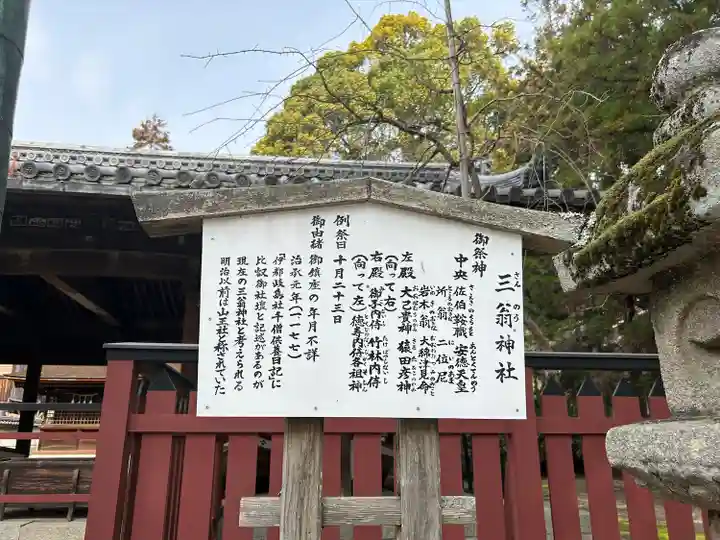 三翁神社
さんのう
御祭神
中央 佐伯鞍職 安徳天皇
所翁 二位尼
岩木翁 大綿津見命
左殿 大己貴神 猿田彦神
(向って右)
右殿 御子内侍 竹林内侍
(向って左) 徳寿内侍各祖神
例祭日 十月二十三日
御由緒 御鎮座の年月不詳
治承元年(一一七七)
「伊都岐島社千僧供養日記に
比叡御社壇と記述があるのが
現在の三翁神社と考えられる
明治以前は山王社と称されていた